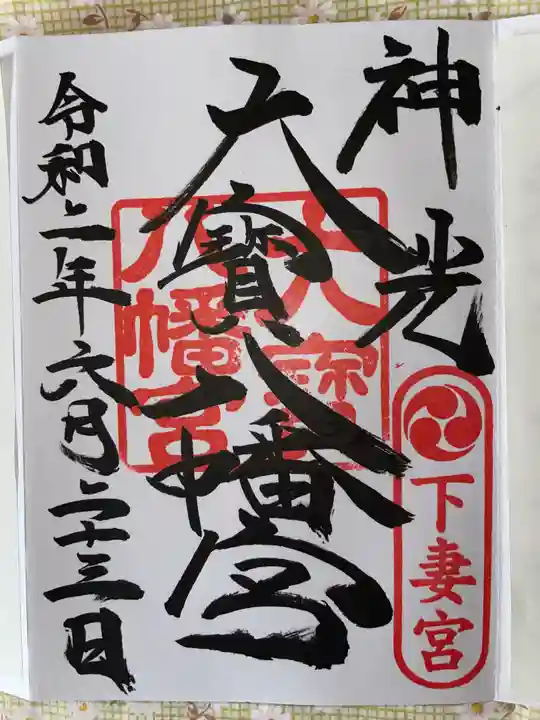 神光
下妻宮
大寳八幡宮
大寳
八幡宮
令和二年六月二十三日